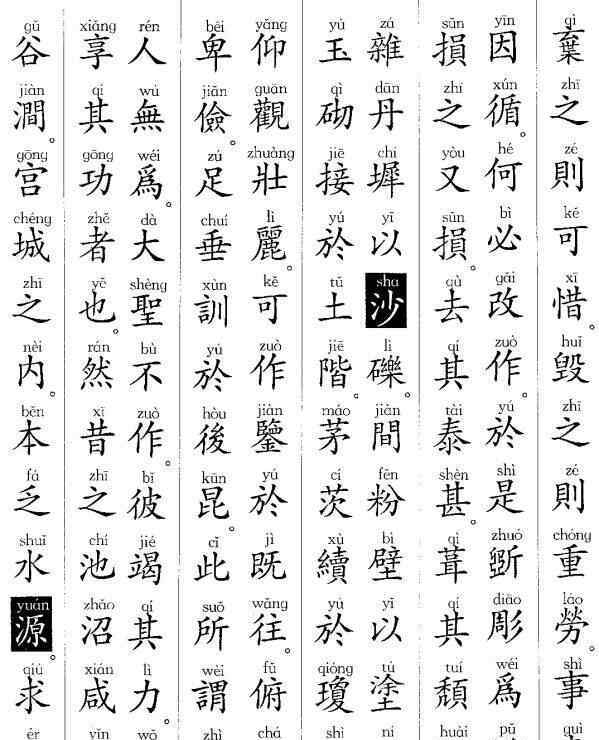 qì zhī zé kě xī huǐ zhī zé chóng láo shì guì
棄之則可惜。毁之則重勞。事
yīn xún hé bì gǎi zuò yú shì zhuó diāo wéi pǔ
因循。何必改作。於是斲彫爲
sǔn zhī yòu sǔn qù qí tài shèn qì qí tuí huài
損之又損。去其泰甚。葺其頹
zá dān chí yǐ shā lì jiàn fěn bì yǐ tú ní
雜丹墀以沙礫。間粉壁以塗
yù qì jiē yú tǔ jiē máo cí xù yú qióng shì
玉砌接於土階。茅茨續於瓊
yǎng guān zhuàng lì kě zuò jiàn yú jì wǎng fǔ chá
仰觀壯麗。可作鑒於既往。俯
bēi jiǎn zú chuí xùn yú hòu kūn cǐ suǒ wèi zhì
卑儉。足垂訓於後昆。此所謂
rén wú wéi dà shèng bù zuò bǐ jié qí lì wǒ
人無爲。大聖不作。彼竭其力。
xiǎng qí gōng zhě yě rán xī zhī chí zhǎo xián yǐn
享其功者也。然昔之池沼咸
gǔ jiàn gōng chéng zhī nèi běn fá shuǐ yuán qiú ér
谷澗。宫城之内。本乏水源。求